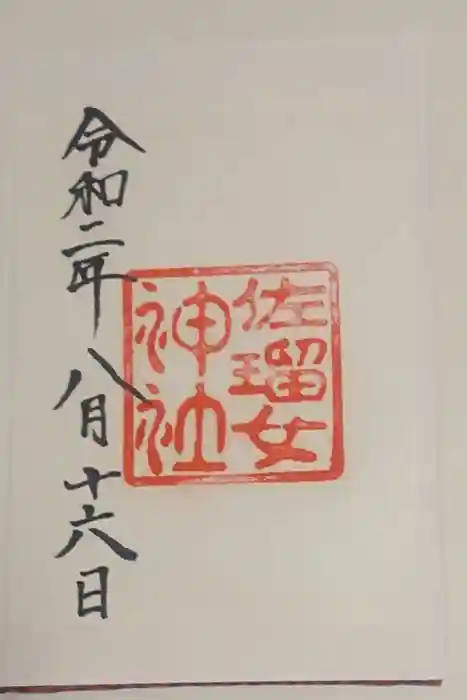 佐瑠女
神社
令和二年八月十六日